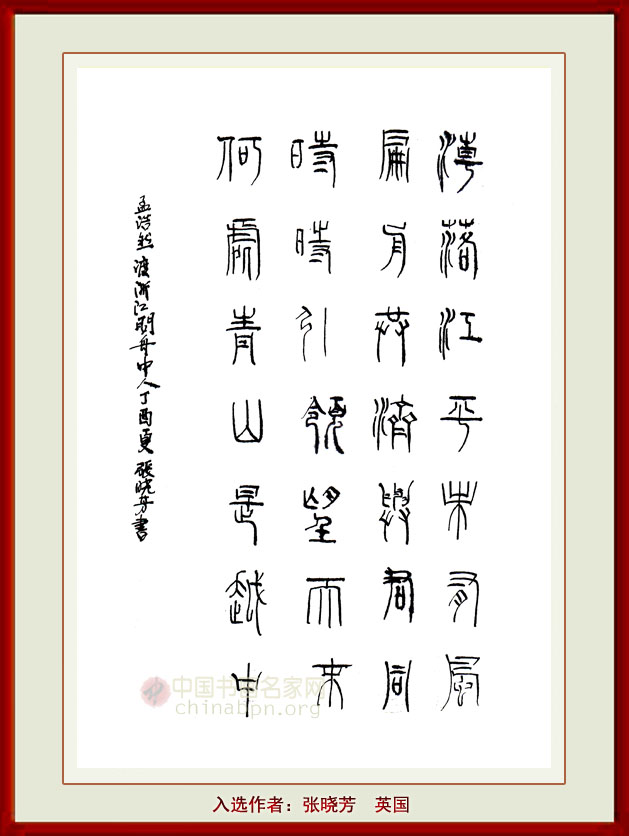 潮落江平未有風
扁舟共濟與君同
時時引領望天末
何處青山是越中
孟浩然渡浙江問舟中人丁酉夏張晓芳書
中国书画名家网
chinabpn.org
入选作者：张晓芳 英国